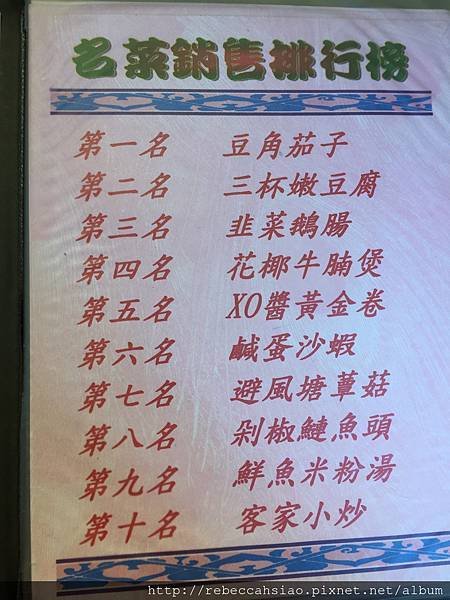 名菜銷售排行榜
第一名 豆角茄子
第二名 三杯嫩豆腐
第三名 韭菜鵝腸
第四名 花椰牛腩煲
第五名 XO醬黃金卷
第六名 鹹蛋沙蝦
第七名 避風塘蕈菇
第八名 剁椒鰱魚頭
第九名 鮮魚米粉湯
第十名 客家小炒
http://rebeccahsiao.pixnet.net/album